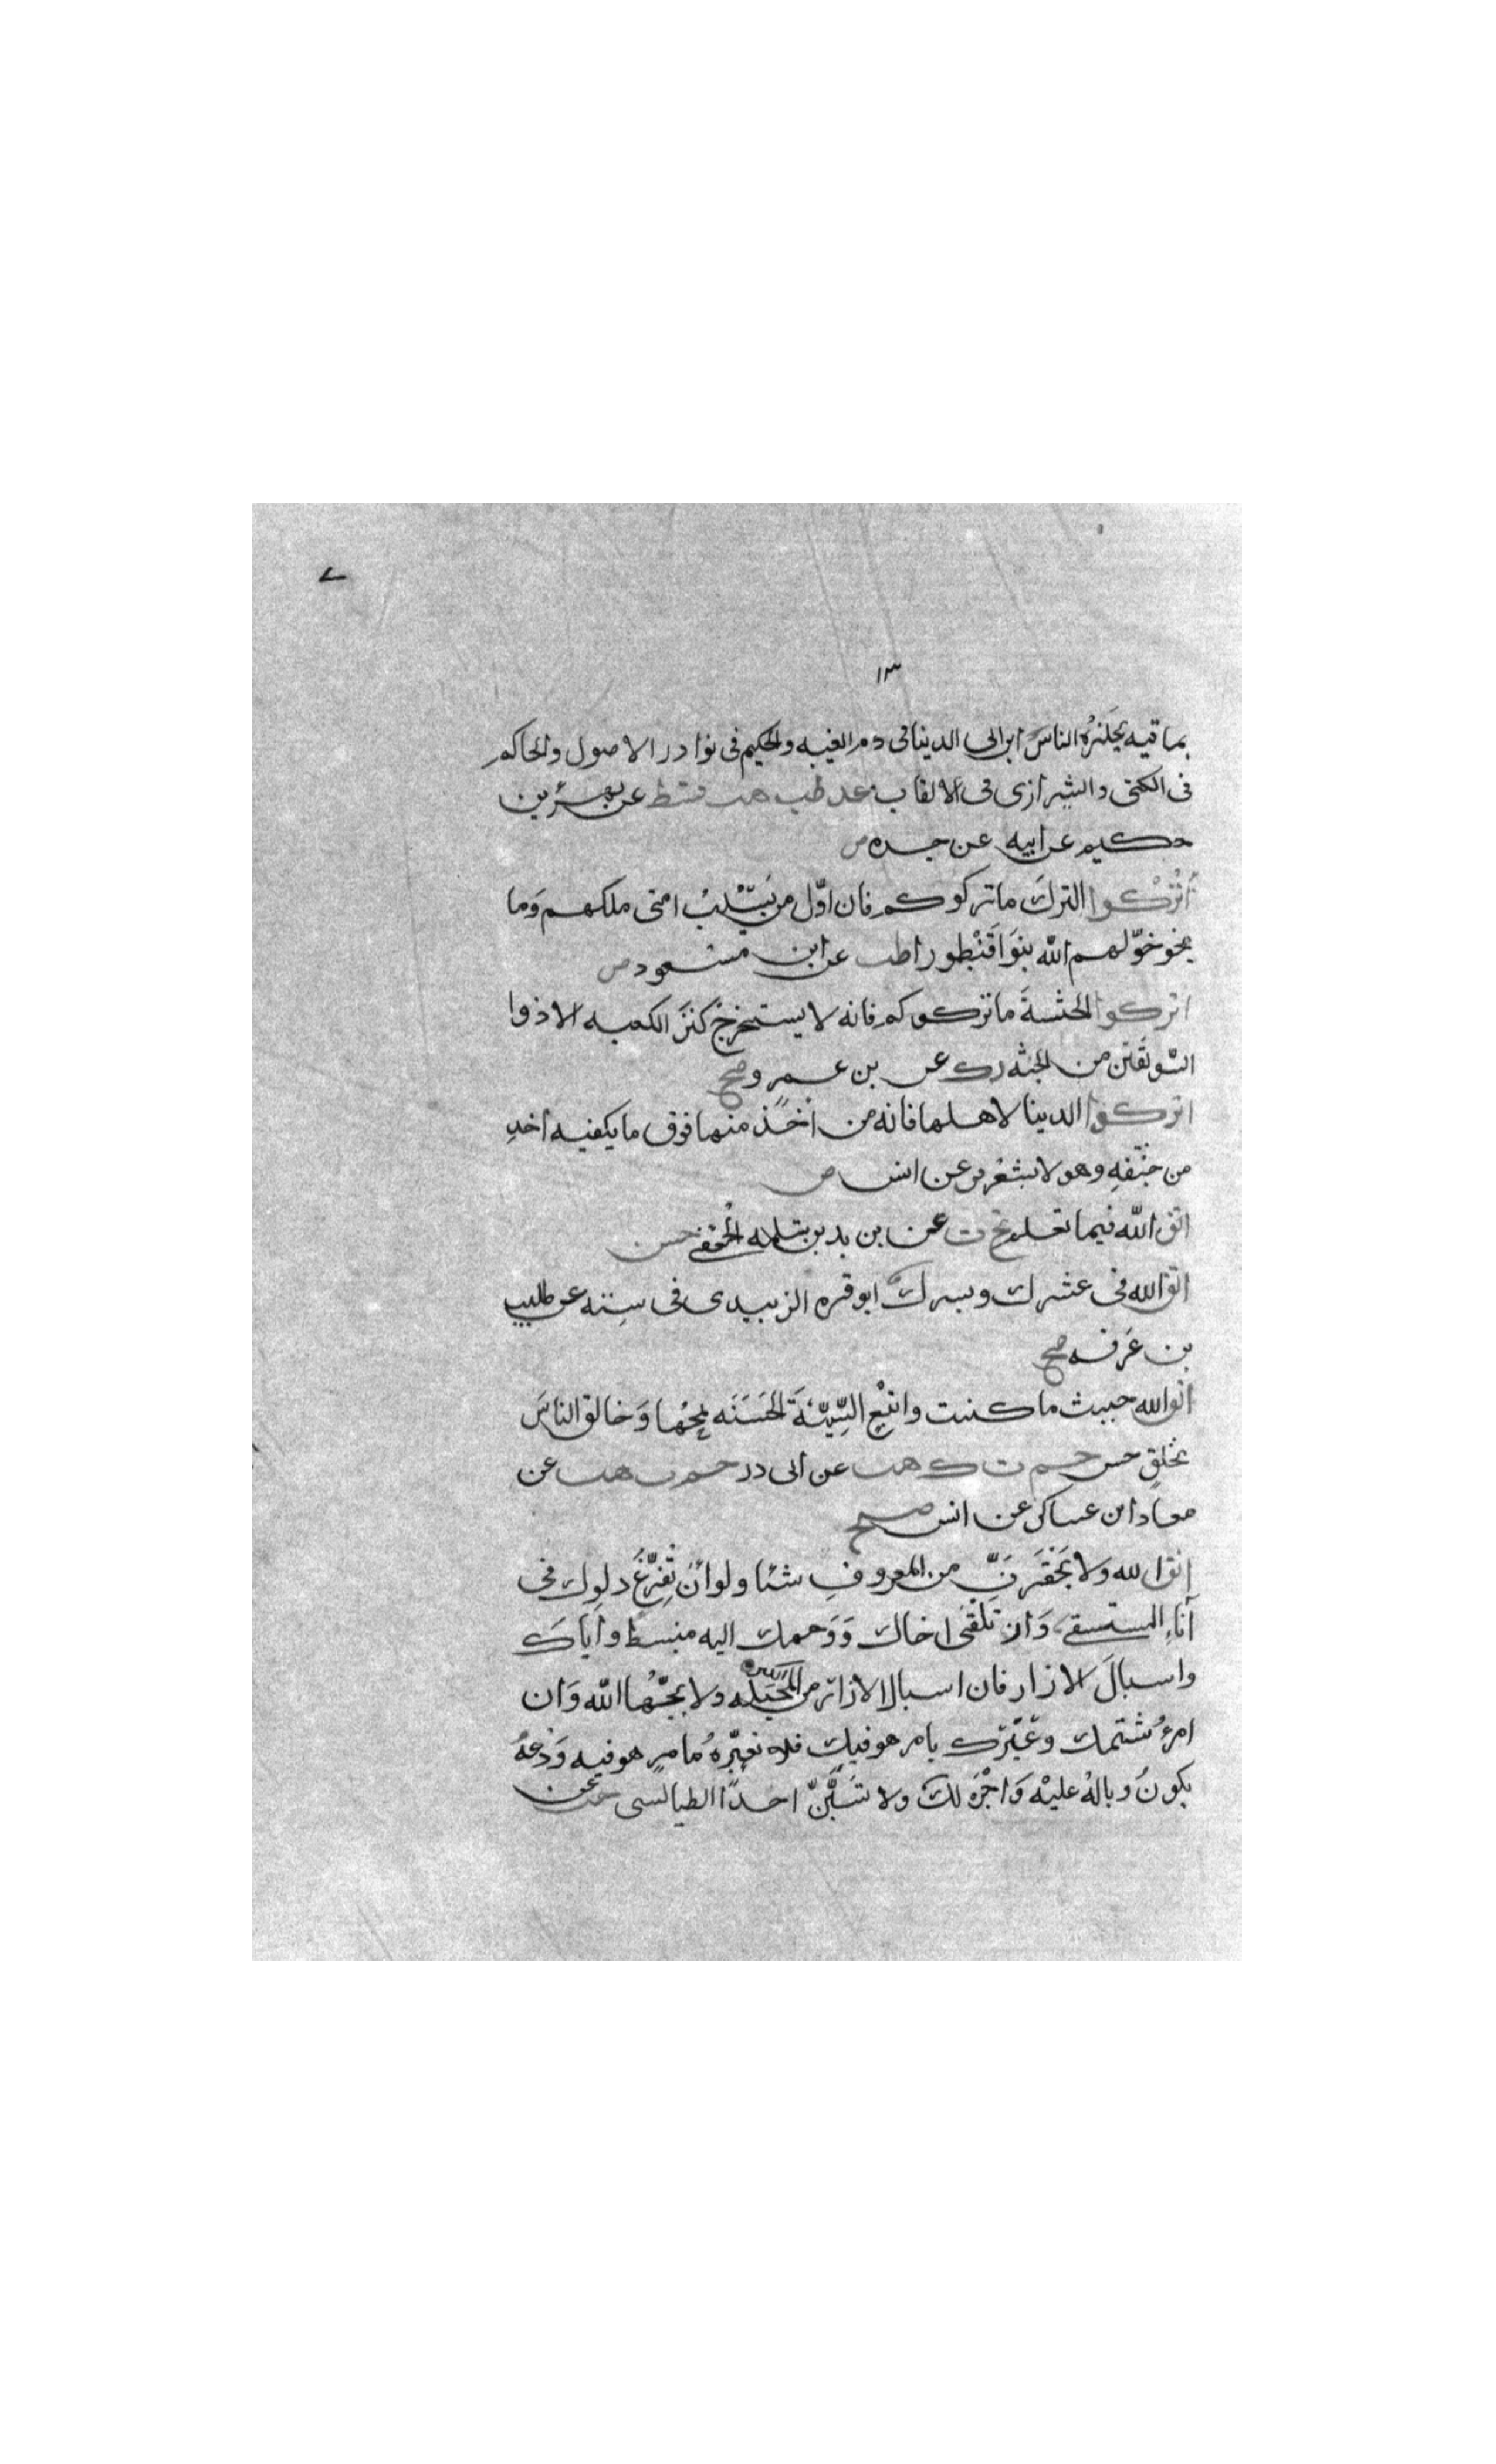 ٧
١٣
بما فيه يحذره الناس ابن ابى الدينا فى ذم الغيبه والحكيم فى نوادر الاصول والحاكم
فى الكنى والشيرازى فى الالقاب عد طب هب خط عن بهز بن
حكيم عن ابيه عن جده ض
اُتْرُكوا الترك ما تركوكم فان اوّل من يسلب امتى ملكهم وَما
خوّلهم الله بنوا قَنْطورا طب عن ابن مسعود ض
اتركوا الحبشةَ ما تركوكم فانه لا يستخرجُ كنزَ الكعبه الا ذوا
السويقتين من الحبشه د ك عن بن عمرو صح
اتركوا الدينا لاهلها فانه من اَخذ منها فوق ما يكفيه اخذ
من حتفه وهو لا يشعر فر عن انس ض
اتق الله فيما تعلم تخ ت عن بن يد بن سلمه الجعفى حسن
اتق الله فى عسرك ويسرك ابو قره الزبيدى فى سننه عن طليب
بن عَرفه صح
اتق الله حيث ما كنت واتبعِ السِّيّئةَ الحَسَنَه تمحُها وَخالق الناسَ
بخلقٍ حسن حم ت ك هب عن ابى ذر حم ت هب عن
معاذ ابن عساكر عن انس صح
اتق الله ولا تَحْقَرَنَّ من المعروفِ شئا ولو أن تُفرِّغَ دلوك فى
أناءِ المستسقى وَان تلقَى اخاك وَوجهك اليه منبسط واياكَ
واسبالَ الازار فان اسبال الازار من المَخيَله ولا يحبُّها الله وَان
امرءُ شتمك وعَيّرك بامر هو فيك فلا تعيّرهُ بامرٍ هو فيه وَدعهُ
يكونُ وبالهُ عليه وَاجْره لك ولا تَسُبَّنَّ احدًا الطيالسى حب عن